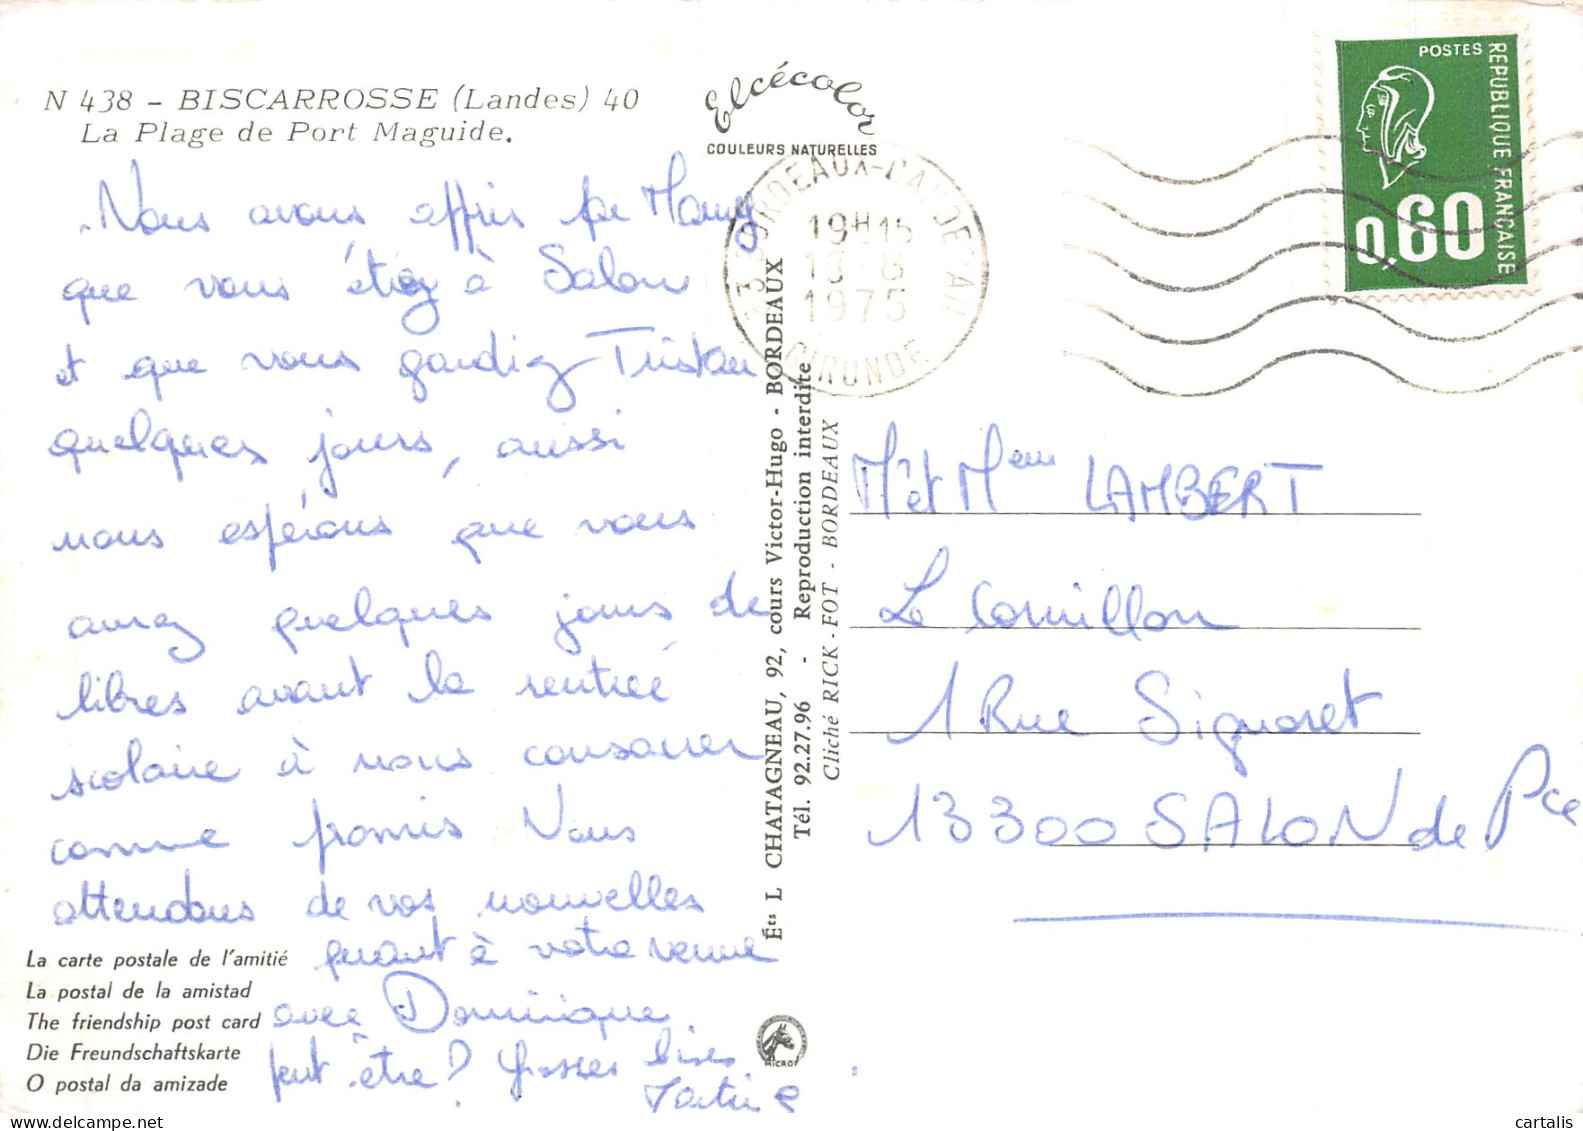 N 438 - BISCARROSSE (Landes) 40
La Plage de Port Maguide.
Elcécolor
COULEURS NATURELLES
Nous avons appris par Mamy
que vous étiez à Salon
et que vous gardiez Tristan
quelques jours, aussi
nous espérons que vous
aurez quelques jours de
libres avant la rentrée
scolaire à nous consacrer
comme promis Nous
attendons de vos nouvelles
quant à votre venue
avec Dominique
peut être ? Grosses bises
La carte postale de l'amitié
La postal de la amistad
The friendship post card
Die Freundschaftskarte
O postal da amizade
Éts L CHATAGNEAU, 92, cours Victor-Hugo - BORDEAUX
Tél. 92.27.96 - Reproduction interdite
Cliché RICK-FOT - BORDEAUX
MICRO
19H15
1975
GIRONDE
POSTES
REPUBLIQUE FRANÇAISE
0,60
Mr et Meme LAMBERT
Le Cornillon
1 Rue Signoret
13300 SALON de Pce
cartalis